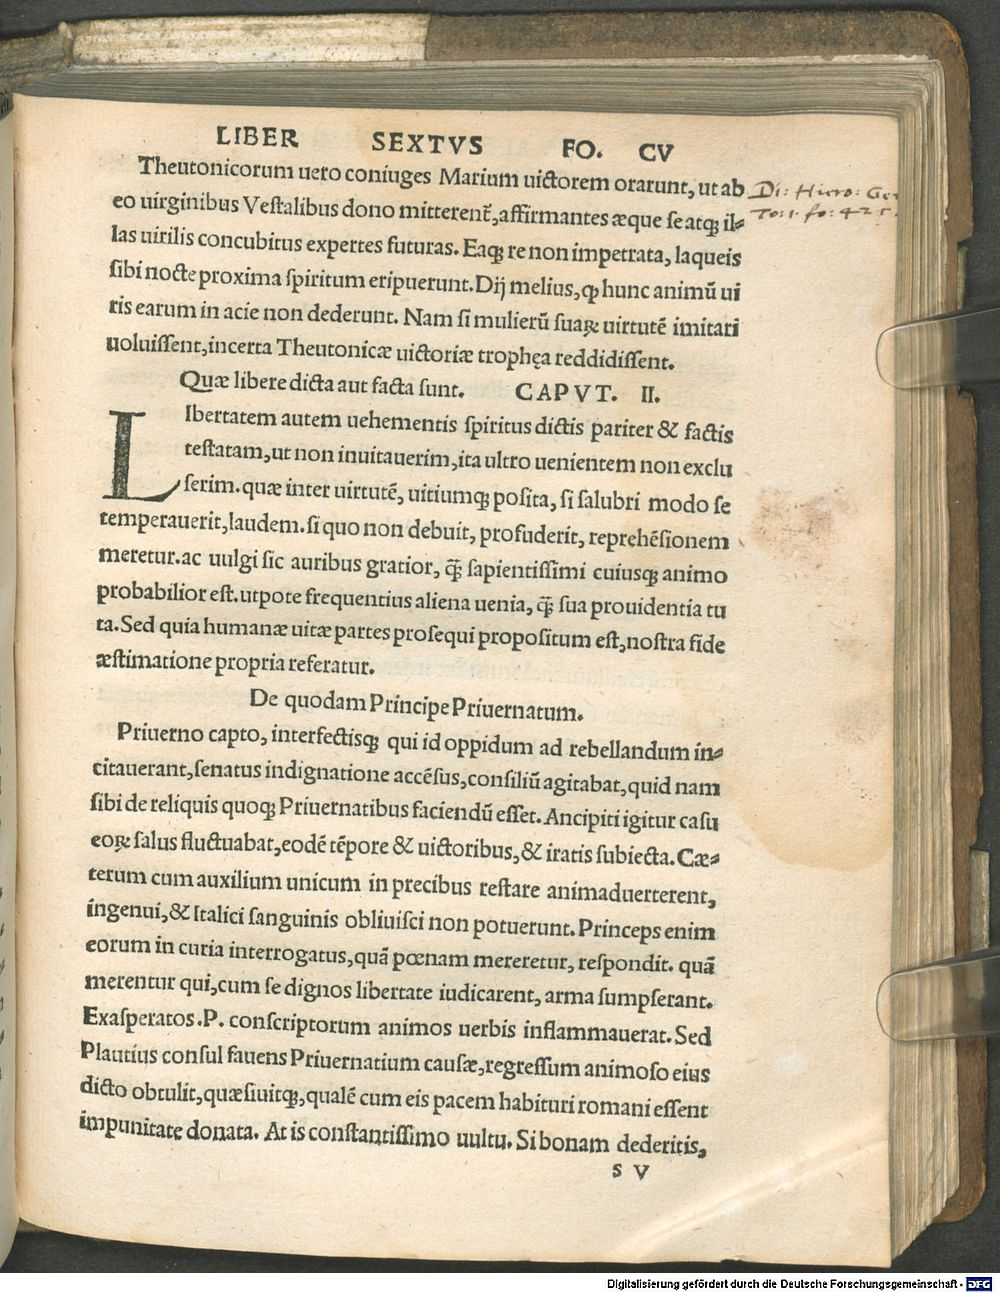 LIBER SEXTVS FO. CV
Theutonicorum uero coniuges Marium uictorem orarunt, ut ab
eo uirginibus Vestalibus dono mitterent̃, affirmantes æque se atqꝫ il⸗
las uirilis concubitus expertes futuras. Eaqꝫ re non impetrata, laqueis
sibi nocte proxima spiritum eripuerunt. Dij melius, ꝙ hunc animũ ui
ris earum in acie non dederunt. Nam si mulierũ suaꝝ uirtutẽ imitari
uoluissent, incerta Theutonicæ uictoriæ trophęa reddidissent.
Quæ libere dicta aut facta sunt. CAPVT. II.
LIbertatem autem uehementis spiritus dictis pariter & factis
testatam, ut non inuitauerim, ita ultro uenientem non exclu
serim. quæ inter uirtutẽ, uitiumqꝫ posita, si salubri modo se
temperauerit, laudem. si quo non debuit, profuderit, reprehẽsionem
meretur. ac uulgi sic auribus gratior, q̃ꝫ sapientissimi cuiusqꝫ animo
probabilior est. utpote frequentius aliena uenia, q̃ꝫ sua prouidentia tu
ta. Sed quia humanæ uitæ partes prosequi propositum est, nostra fide
æstimatione propria referatur.
De quodam Principe Priuernatum.
Priuerno capto, interfectisqꝫ qui id oppidum ad rebellandum in⸗
citauerant, senatus indignatione accẽsus, consiliũ agitabat, quid nam
sibi de reliquis quoqꝫ Priuernatibus faciendũ esset. Ancipiti igitur casu
eoꝝ salus fluctuabat, eodẽ tẽpore & uictoribus, & iratis subiecta. Cæ⸗
terum cum auxilium unicum in precibus restare animaduerterent,
ingenui, & Italici sanguinis obliuisci non potuerunt. Princeps enim
eorum in curia interrogatus, quã pœnam mereretur, respondit. quã
merentur qui, cum se dignos libertate iudicarent, arma sumpserant.
Exasperatos .P. conscriptorum animos uerbis inflammauerat. Sed
Plautius consul fauens Priuernatium causæ, regressum animoso eius
dicto obtulit, quæsiuitqꝫ, qualẽ cum eis pacem habituri romani essent
impunitate donata. At is constantissimo uultu. Si bonam dederitis,
S V
Di: Hiero: Ge
To: 1. fo: 42
Digitalisierung gefördert durch die Deutsche Forschungsgemeinschaft - DFG